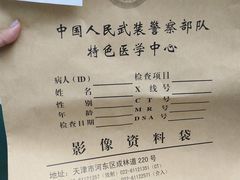 中国人民武装警察部队
特色医学中心
病人(ID) 检查项目
姓名 X线号
性别 CT号
年龄 MR号
检查日期 DSA号
影像资料袋
地址:天津市河东区成林道220号